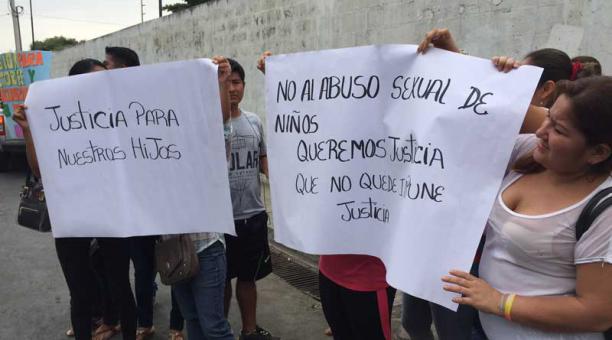 JUSTICIA PARA
NUESTROS HIJOS
NO AL ABUSO SEXUAL DE
NIÑOS
QUEREMOS JUSTICIA
QUE NO QUEDE IMPUNE
JUSTICIA